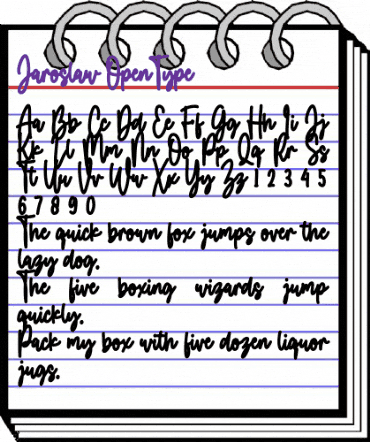 Jaroslaw OpenType
Aa Bb Cc Dd Ee Ff Gg Hh Ii Jj
Kk Ll Mm Nn Oo Pp Qq Rr Ss
Tt Uu Vv Ww Xx Yy Zz 1 2 3 4 5
6 7 8 9 0
The quick brown fox jumps over the
lazy dog.
The five boxing wizards jump
quickly.
Pack my box with five dozen liquor
jugs.